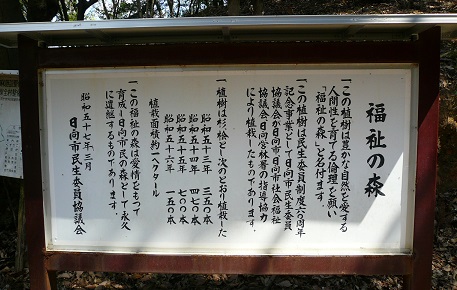 福祉の森
一、この植樹は豊かな自然と愛する
人間性を育てる倫理を願い
「福祉の森」と名付ます。
一、この植樹は民生委員制度六〇周年
記念事業として日向市民生委員
協議会が日向市、日向市社会福祉
協議会、日向営林署の指導協力
により植栽したものであります。
一、植樹は杉桧とし次のとおり植栽した
昭和五十三年 三五〇本
昭和五十四年 四七〇本
昭和五十五年 七〇〇本
昭和五十六年 一五〇本
植栽面積約一ヘクタール
一、この福祉の森は愛情をもって
育成し日向市民の森として永久
に遺継するものであります。
昭和五十七年三月
日向市民生委員協議会